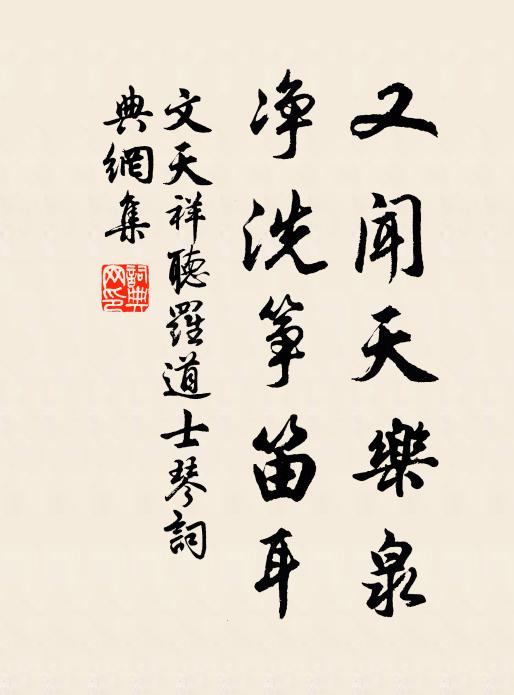 又聞天樂泉
净洗箏笛耳
文天祥聽羅道士琴詞
典網集
詞典網印